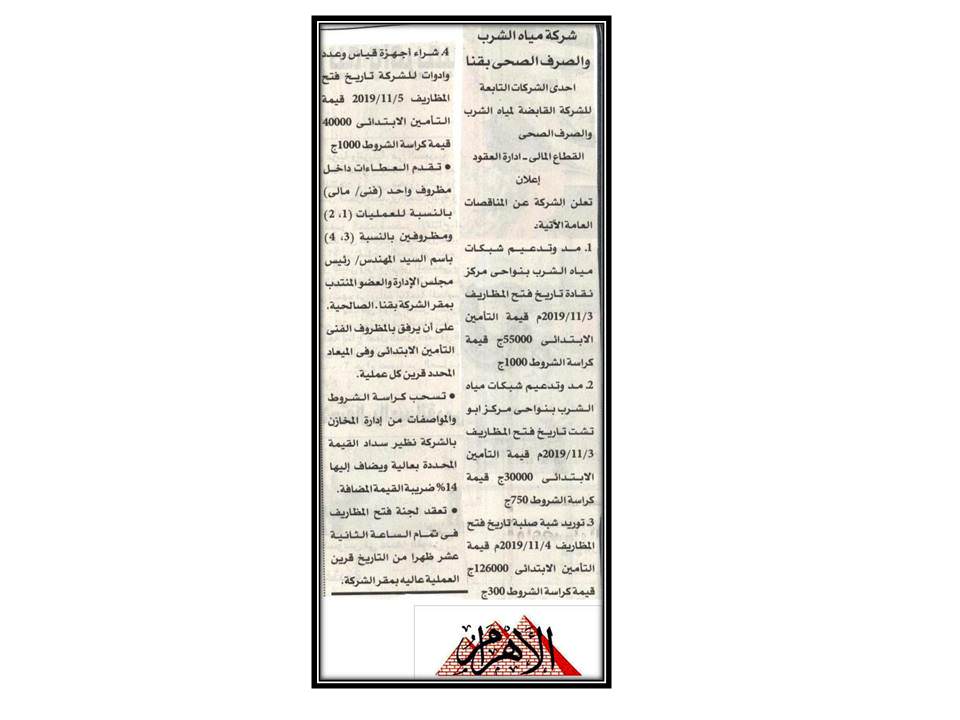 شركة مياه الشرب
والصرف الصحى بقنا
احدى الشركات التابعة
للشركة القابضة لمياه الشرب
والصرف الصحى
القطاع المالى - ادارة العقود
إعلان
تعلن الشركة عن المناقصات
العامة الآتية:
1. مد وتدعيم شبكات
مياه الشرب بنواحى مركز
نقادة تاريخ فتح المظاريف
2019/11/3م قيمة التأمين
الابتدائى 55000ج قيمة
كراسة الشروط 1000ج
2. مد وتدعيم شبكات مياه
الشرب بنواحى مركز ابو
تشت تاريخ فتح المظاريف
2019/11/3م قيمة التأمين
الابتدائى 30000ج قيمة
كراسة الشروط 750ج
3. توريد شبة صلبة تاريخ فتح
المظاريف 2019/11/4م قيمة
التأمين الابتدائى 126000ج
قيمة كراسة الشروط 300ج
4. شراء أجهزة قياس وعدد
وادوات للشركة تاريخ فتح
المظاريف 2019/11/5 قيمة
التأمين الابتدائى 40000
قيمة كراسة الشروط 1000ج
• تقدم العطاءات داخل
مظروف واحد (فنى/ مالى)
بالنسبة للعمليات (1، 2)
ومظروفين بالنسبة (3، 4)
باسم السيد المهندس/ رئيس
مجلس الإدارة والعضو المنتدب
بمقر الشركة بقنا. الصالحية.
على أن يرفق بالمظروف الفنى
التأمين الابتدائى وفى الميعاد
المحدد قرين كل عملية.
• تسحب كراسة الشروط
والمواصفات من إدارة المخازن
بالشركة نظير سداد القيمة
المحددة بعالية ويضاف إليها
14% ضريبة القيمة المضافة.
• تعقد لجنة فتح المظاريف
فى تمام الساعة الثانية
عشر ظهرا من التاريخ قرين
العملية عاليه بمقر الشركة.
الأهرام